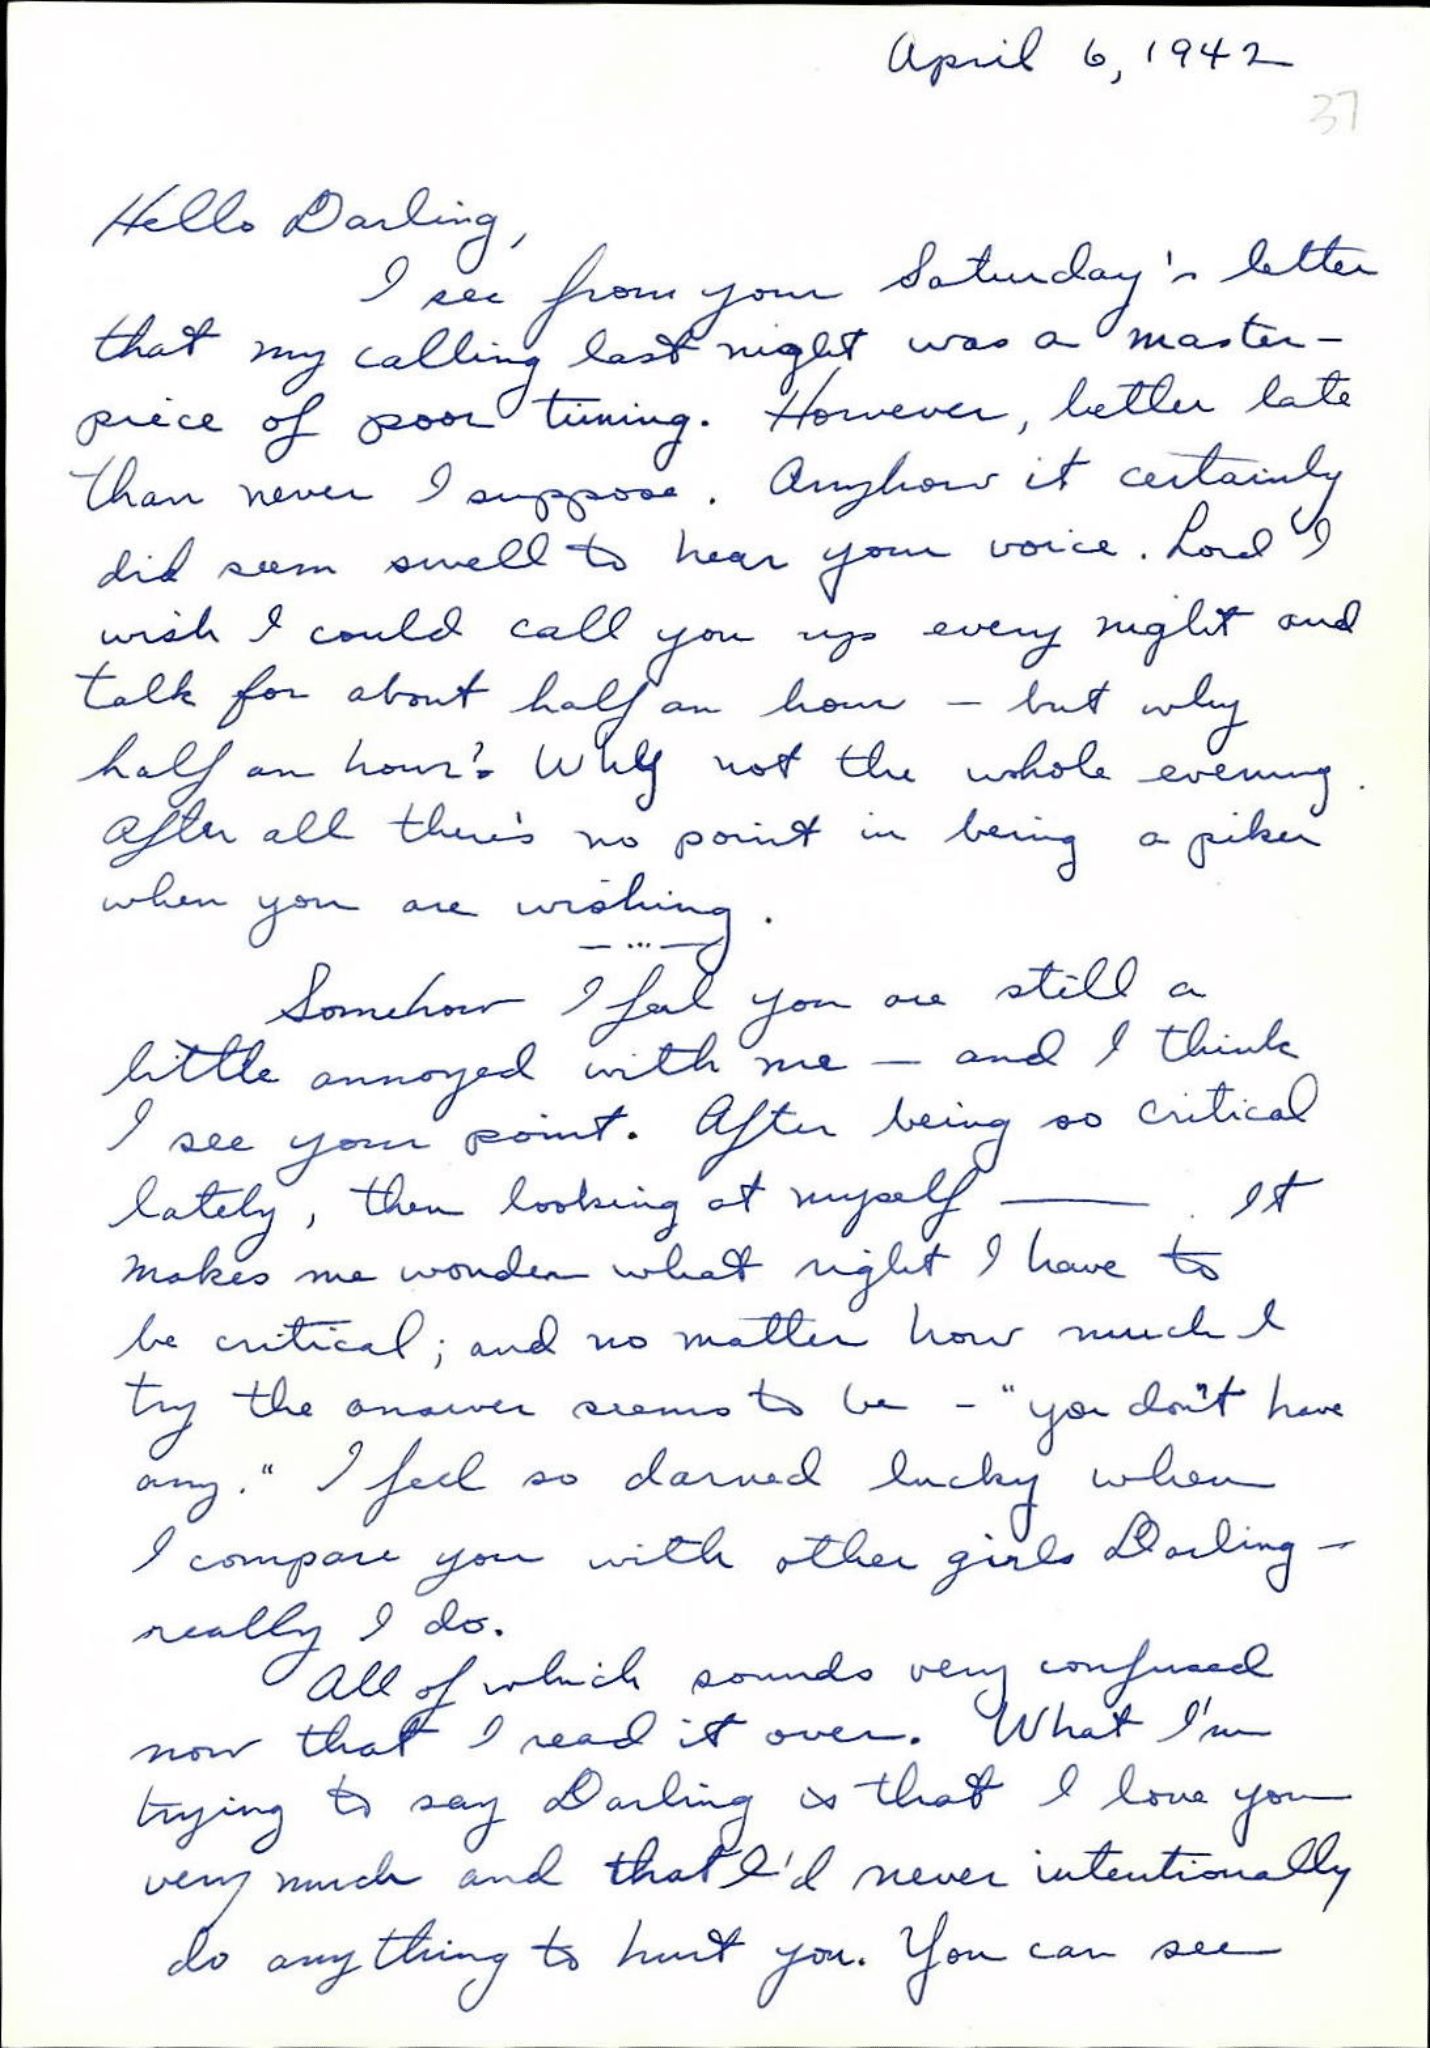 April 6, 1942
37
Hello Darling,
I see from your Saturday's letter
that my calling last night was a master-
piece of poor timing. However, better late
than never I suppose. Anyhow it certainly
did seem swell to hear your voice. Lord I
wish I could call you up every night and
talk for about half an hour - but why
half an hour? Why not the whole evening.
After all there's no point in being a piker
when you are wishing.
— ... —
Somehow I feel you are still a
little annoyed with me — and I think
I see your point. After being so critical
lately, then looking at myself ——— . It
makes me wonder what right I have to
be critical; and no matter how much I
try the answer seems to be - "you don't have
any." I feel so darned lucky when
I compare you with other girls Darling —
really I do.
All of which sounds very confused
now that I read it over. What I'm
trying to say Darling is that I love you
very much and that I'd never intentionally
do anything to hurt you. You can see